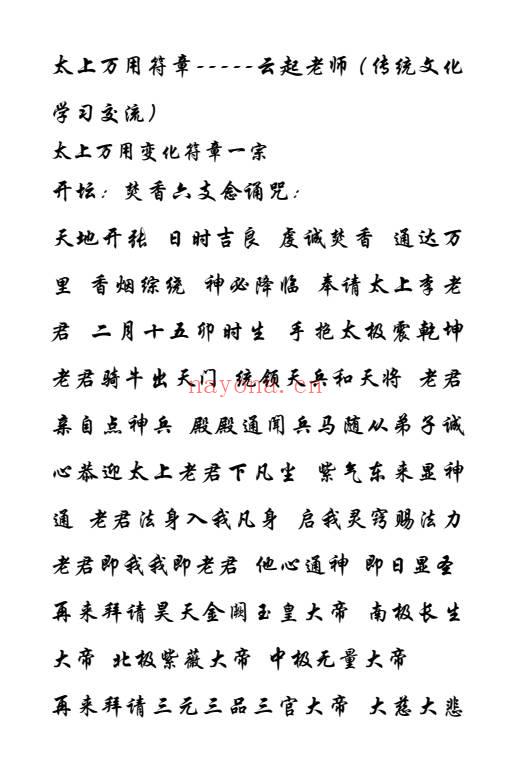 太上万用符章-----云起老师（传统文化
学习交流）
太上万用变化符章一宗
开坛：焚香六支念诵咒：
天地开张 日时吉良 虔诚焚香 通达万
里 香烟综绕 神必降临 奉请太上李老
君 二月十五卯时生 手抱太极震乾坤
老君骑牛出天门 统领天兵和天将 老君
nayona.cn
亲自点神兵 殿殿通闻兵马随从弟子诚
心恭迎太上老君下凡尘 紫气东来显神
通 老君法身入我凡身 启我灵窍赐法力
老君即我我即老君 他心通神 即日显圣
再来拜请昊天金阙玉皇大帝 南极长生
大帝 北极紫薇大帝 中极无量大帝
再来拜请三元三品三官大帝 大慈大悲